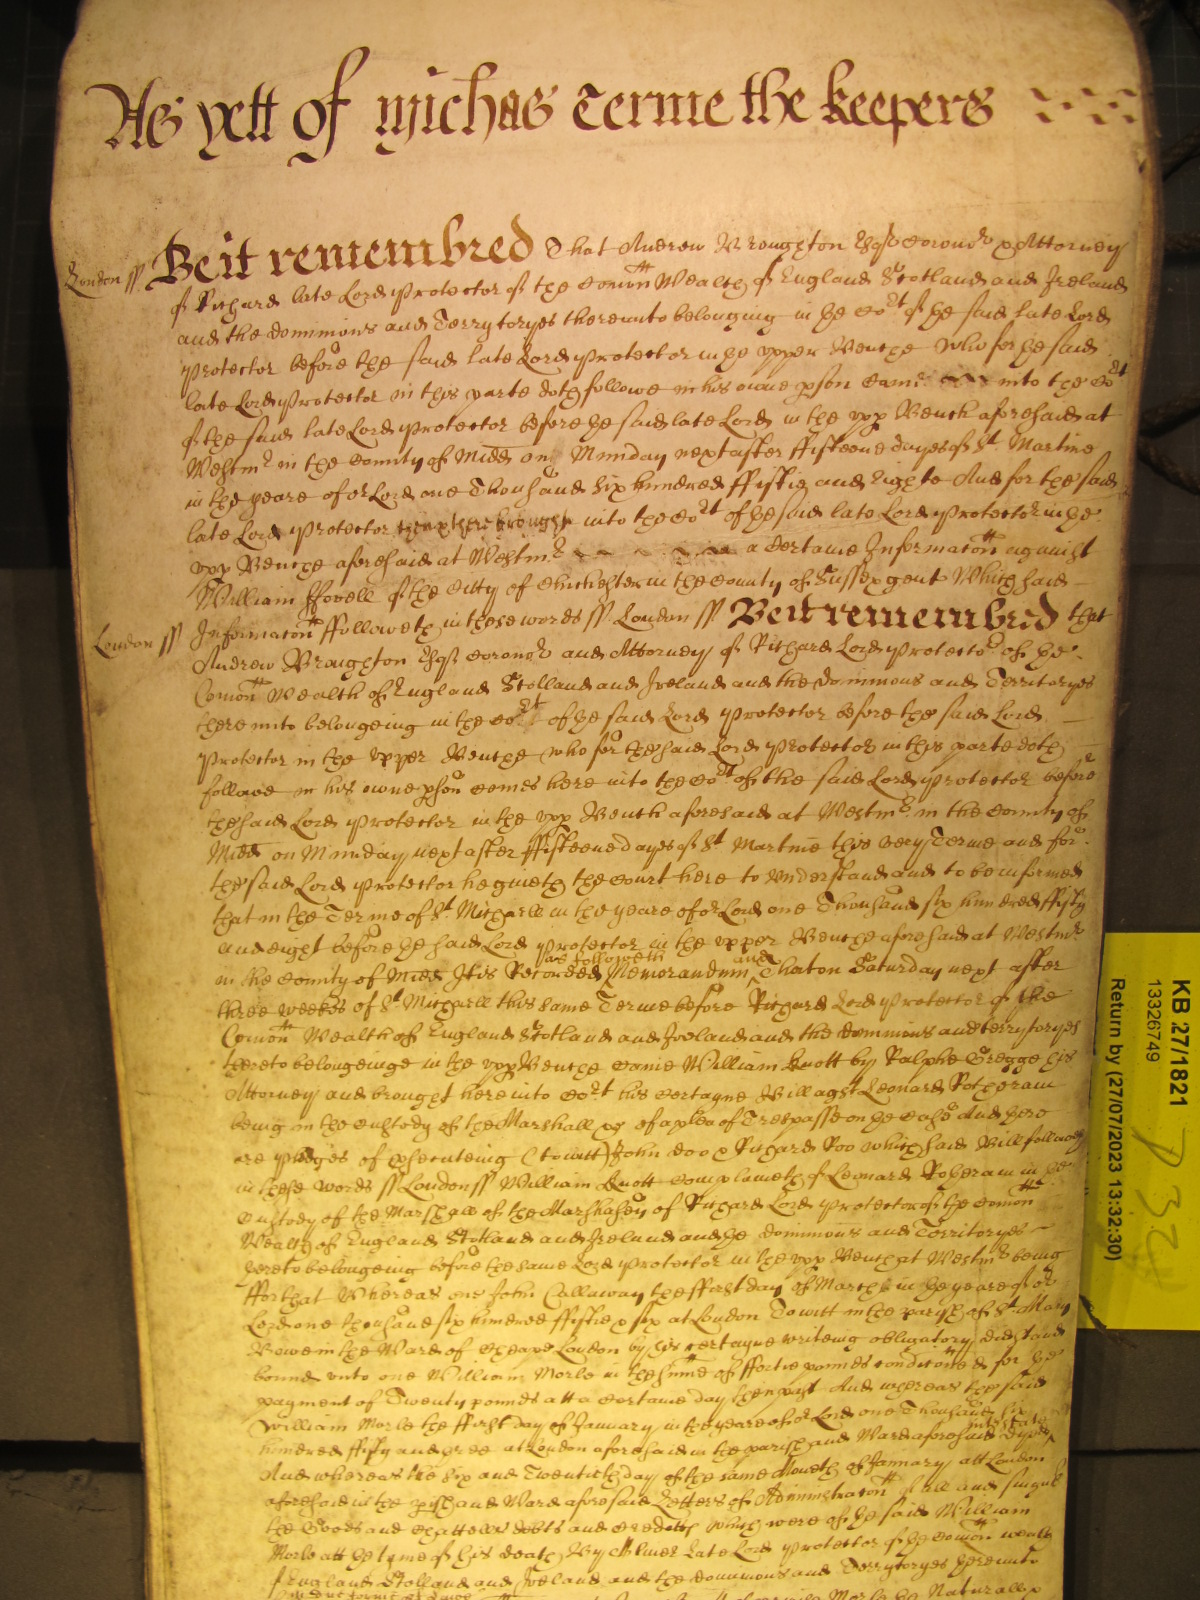 As yett of Michas Terme the keepers
London ss Be it remembred That Andrew Broughton Esqr Coron & Attorney
of Richard late Lord Protector of the Comon Wealth of England Scotland and Ireland
and the dominions and Terrytoryes thereunto belonging in he Cort of he said late Lord
Protector before the said late Lord Protector in he upper Benche Who for he said
late Lord Protector in this parte doth followe in his owne pson Came into the Cort
of the said late Lord Protector before he said late Lord in the upp Bench aforesaid at
Westmr in the County of Midd on Munday next after ffifteene dayes of St Martine
in the yeare of or Lord one Thousand six hundred ffiftie and Eighte And for the said
late Lord Protector then & there brought into the Cort of he said late Lord Protector in he
upp Benche aforesaid at Westmr a Certaine Informacon against
William Fovell of the Citty of Chichester in the County of Sussex gent Which said
London ss Informacon ffolloweth in these words ss London ss Be it remembred that
Andrew Broughton Esqr Coronor and Attorney of Richard Lord Protector of he
Comon Wealth of England Scotland and Ireland and the Dominions and Territoryes
thereunto belongeing in the Cort of he said Lord Protector before the said Lord
Protector in the Upper Benche who for the said Lord Protector in this parte doth
followe in his owne pson comes here into the Cort of the said Lord Protector before
the said Lord Protector in the upp Bench aforesaid at Westmr in the County of
Midd on Munday next after ffifteene dayes of St Martine this very Terme and for
the said Lord Protector he giveth the Court here to understand and to be informed
that in the Terme of St Michaell in the yeare of or Lord one Thousand six hundred ffifty
and eight before he said Lord Protector in the upper Benche aforesaid at Westmr
in the County of Midd It is Recorded as followeth Memorandum and That on Saturday next after
three weekes of St Michaell this same Terme before Richard Lord Protector of the
Comon Wealth of England Scotland and Ireland and the dominions and terrytoryes
thereto belongeinge in the upp Benche Came William Knott by Ralphe Gregge his
Attorney and brought here into Cort his Certayne Bill agst Leonard Rotheram
being in the Custody of the Marshall &c of a plea of Trespasse on he Case And here
are pledges of psecuteing (to witt) John Doo & Richard Roo which said Bill followeth
in these words ss London ss William Knott complaineth of Leonard Rotheram in he
Custody of the Marshall of the Marshalsey of Richard Lord Protector of the Comon
Wealth of England Scotland and Ireland and he dominions and Territoryes
hereto belongeing before the same Lord Protector in the upp Bench at Westmr being
ffor that Whereas one John Callaway the ffirst day of March in he yeare of or
Lord one thousand six hundred ffiftie & six at London To witt in the parish of St Mary
Bowe in the Ward of Cheape London by his certayne writeing obligatory did stand
bound unto one William Morle in the sume of ffortie pounds condiconed for he
payment of Twenty pounds att a certaine day then past And whereas the said
William Morle the ffirst day of January in the yeare of or Lord one Thousand six
hundred ffifty and three at London aforesaid in the parish and Ward aforesaid dyed intestate
And whereas the six and Twentieth day of the same Moneth of January att London
aforesaid in the pish and Ward aforesaid Letters of Administracon of all and singuler
the Goods and Chattells debts and Creditts which were of he said William
Morle att he tyme of his death By Oliver Late Lord Protector of he Comon wealth
of England Scotland and Ireland and the dominions and Terrytoryes hereunto
KB 27/1821
13326749
Return by (27/07/2023 13:32:30)